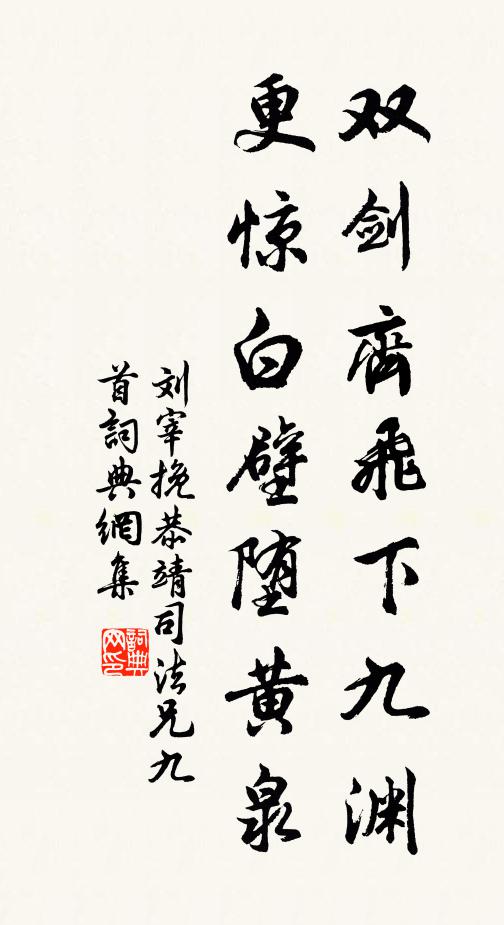 双剑齊飛下九渊
更惊白璧堕黄泉
刘宰挽恭靖司法兄九
首詞典網集
詞典网印